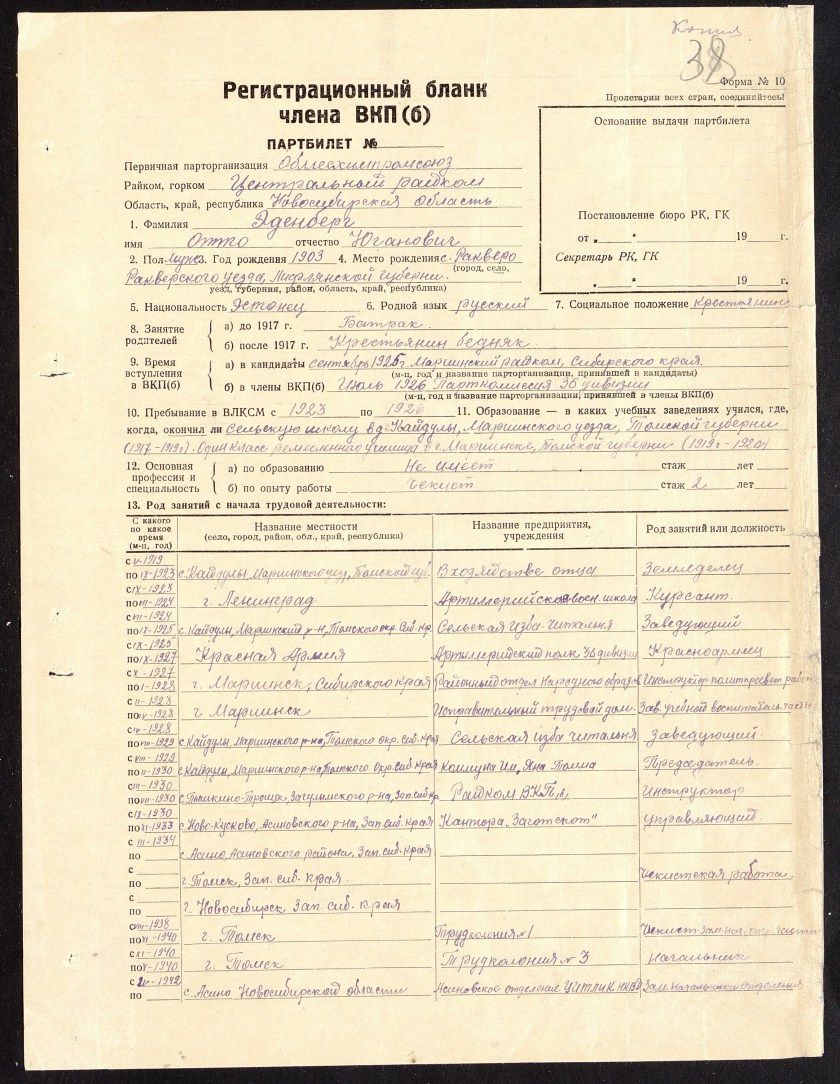 Копия
38
Форма № 10
Пролетарии всех стран, соединяйтесь!
Регистрационный бланк
члена ВКП(б)
ПАРТБИЛЕТ №
Основание выдачи партбилета
Постановление бюро РК, ГК
от „ “ 19 г.
Секретарь РК, ГК
„ “ 19 г.
Первичная парторганизация Облместхимпромсоюз
Райком, горком Центральный райком
Область, край, республика Новосибирская область
1. Фамилия Эденберг
имя Отто отчество Юганович
2. Пол муж 3. Год рождения 1903 4. Место рождения с. Раквере
(город, село,
Раквереского уезда, Лифлянской губернии.
уезд, губерния, район, область, край, республика)
5. Национальность Эстонец 6. Родной язык русский 7. Социальное положение крестьянин
8. Занятие родителей
а) до 1917 г. Батрак.
б) после 1917 г. Крестьянин бедняк
9. Время вступления в ВКП(б)
а) в кандидаты сентябрь 1925 г. Мариинский райком, Сибирского края.
(м-ц, год и название парторганизации, принявшей в кандидаты)
б) в члены ВКП(б) Июль 1926 Парткомиссия 36 дивизии
(м-ц, год и название парторганизации, принявшей в члены ВКП(б)
10. Пребывание в ВЛКСМ с 1923 по 1926 11. Образование — в каких учебных заведениях учился, где,
когда, окончил ли Сельскую школу в д. Кайдулы, Мариинского уезда, Томской губернии
(1917-1919 г). Один класс ремесленного училища в г. Мариинске, Томской губернии (1919 г - 1920)
12. Основная профессия и специальность
а) по образованию Не имеет стаж лет
б) по опыту работы Чекист стаж 2 лет
13. Род занятий с начала трудовой деятельности:
С какого по какое время (м-ц, год) Название местности (село, город, район, обл., край, республика) Название предприятия, учреждения Род занятий или должность
с V-1919
по IX-1923 с. Кайдулы, Мариинского уезд, Томской губ. В хозяйстве отца Земледелец
с IX-1923
по III-1924 г. Ленинград Артиллерийская воен. школа Курсант.
с III-1924
по IX-1925 с. Кайдулы, Мариинский р-н, Томского окр. Сиб. кр. Сельская Изба-Читальня Заведующий
с IX-1925
по IX-1927 Красная Армия Артиллерийский полк 36 дивизии Красноармеец
с X-1927
по I-1928 г. Мариинск, Сибирского края Районный отдел Народного образов Инструктор политпросвет работы
с II-1928
по IV-1928 г Мариинск Исправительный трудовой дом. Зав. учебной воспитательн. частью
с IV-1928
по VIII-1929 с. Кайдулы, Мариинского р-на, Томского окр. Сиб. края Сельская изба читальня Заведующий.
с VIII-1929
по II-1930 с. Кайдулы, Мариинского р-на, Томского Окр. Сиб. края Коммуна Им, Яна Томпа Председатель.
с III-1930
по VIII-1930 с. Пышкино-Троицк, Зачулымского р-на, Зап. сиб. кр. Райком ВКП(б) Инструктор
с IX-1930
по XI-1933 с. Ново-Кусково, Асиновского р-на, Зап. сиб. края Кантора „Заготскот" управляющий.
с III-1934
по с. Асино, Асиновского района, Зап. сиб. края
с
по г. Томск, Зап. сиб. края. Чекистская работа
с
по г. Новосибирск Зап сиб. края
с VIII-1938
по XI-1940 г. Томск Трудколония № 1 Чекист. Зам. нач.
с XI-1940
по X-1940 г. Томск Трудколония № 3 Начальник
с IV-1942
по с. Асино Новосибирской области Асиновское отделение УИТЛиК НКВД Зам. Начальника Отделения